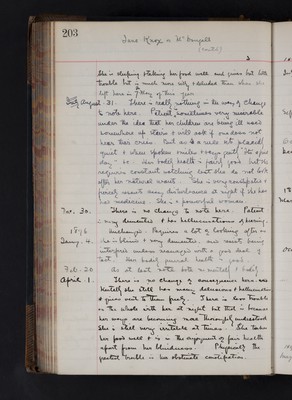 203
Jane Knox or McDougall
(contd)
She is sleeping & taking her food well and gives but little
trouble but is much more silly & deluded than when she
left here in of this year.
August 31. There is really nothing in the way of change
to note here. Patient sometimes very miserable
under the idea that her children are being ill used
somewhere up stairs & will ask if one does not
hear their cries. But as a rule is placid
quiet & when spoken smiles & says "it's a fine
day" &c. Her bodily health is fairly good but she
requires constant watching lest she do not look
after her natural wants. She is very constipated &
fairly wont any disturbance at night if she has
had medicine. She is a powerful woman.
Nov. 30. There is no change to note here. Patient
is very demented & her hallucinations of hearing
1896 unchanged. Requires a lot of looking after as
Janry. 4. she is blind & very demented, and resents being
interfered with managed with a good deal of
tact. Her bodily general health is good.
Feb. 20 As at last note both mentally & bodily
April 1. There is no change of consequence here
mentally she still has many delusions & hallucinations
& gives vent to them freely. There is less trouble
on the whole with her at night but that is because
her ways are becoming more thoroughly understood
She is still very irritable at times. She takes
her food well & is in the enjoyment of fair health
apart from her blindness. Physically the
greatest trouble is her obstinate constipation.